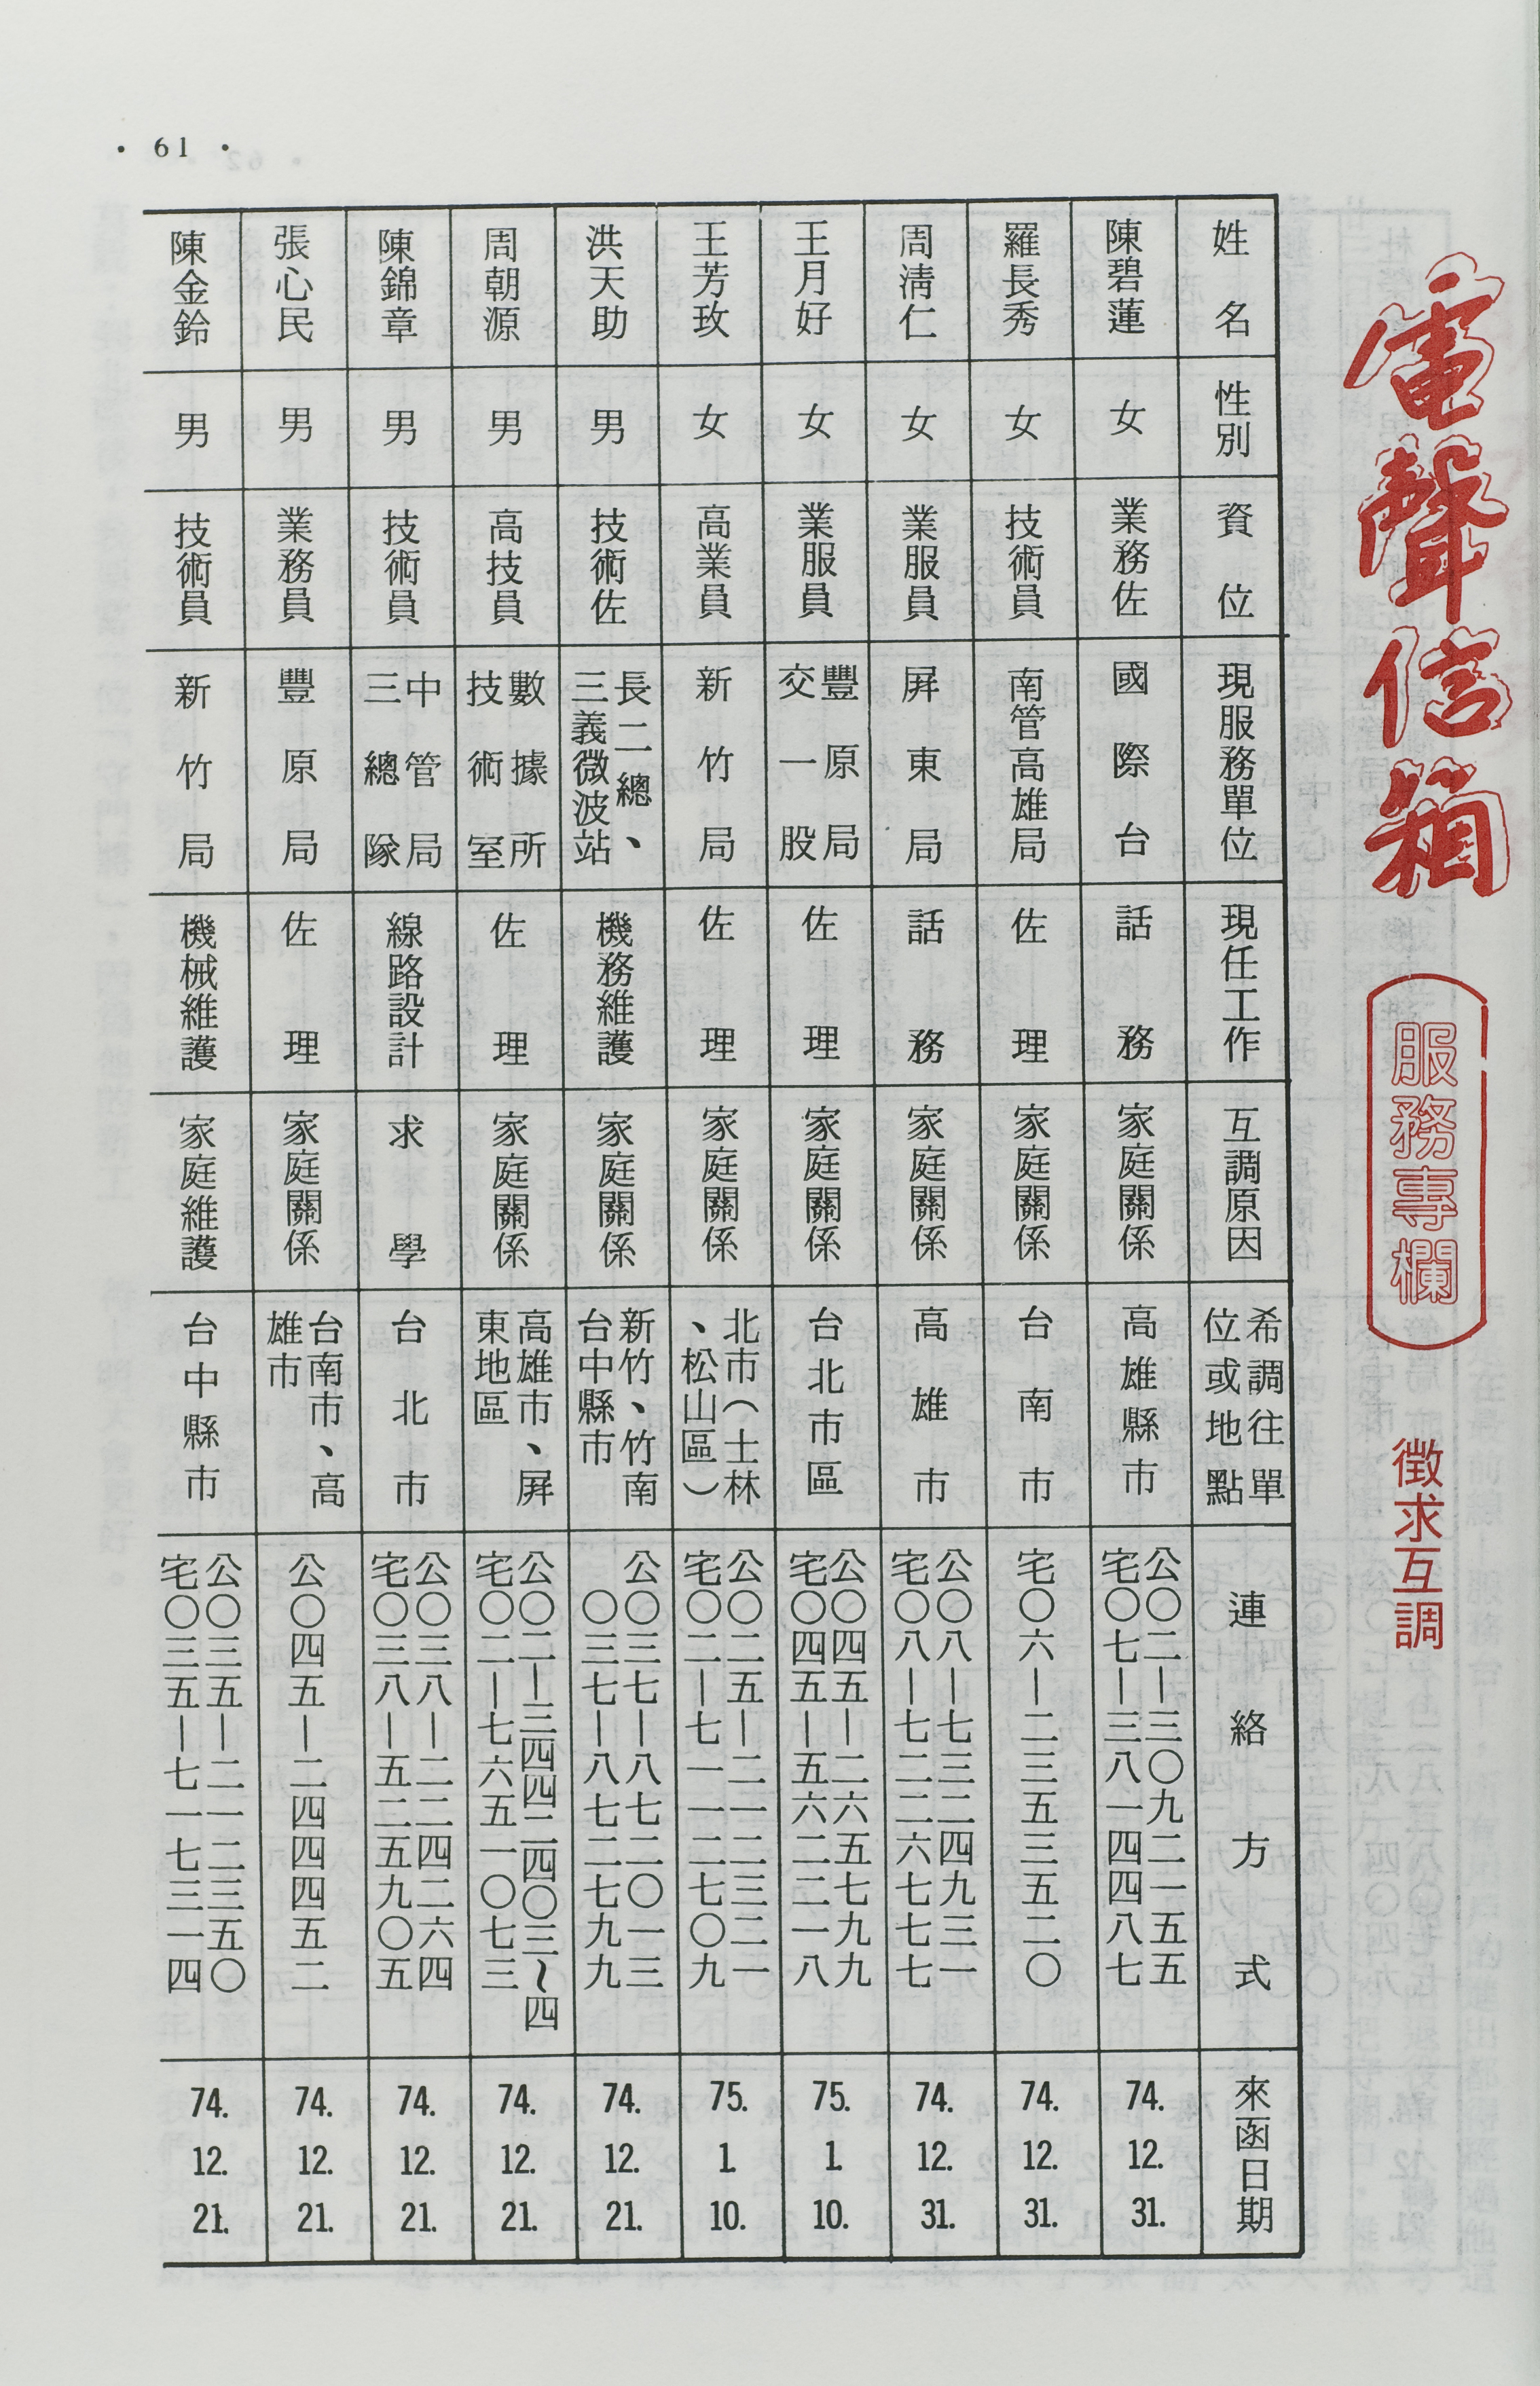 電聲信箱
服務專欄
徵求互調
姓名
性別
資位
現服務單位
現任工作
互調原因
希調往單
位或地點
連絡方式
來函日期
陳碧蓮
女
業務佐
國際台
話務
家庭關係
高雄縣市
公〇二—三〇九二一五五
宅〇七—三八一四四八七
74. 12. 31.
羅長秀
女
技術員
南管高雄局
佐理
家庭關係
台南市
宅〇六—二三五三五二〇
74. 12. 31.
周清仁
女
業服員
屏東局
話務
家庭關係
高雄市
公〇八—七三二四九三一
宅〇八—七二二六七七七
74. 12. 31.
王月好
女
業服員
豐原局
交一股
佐理
家庭關係
台北市區
公〇四五—二六五七九九
宅〇四五—五六二二一八
75. 1. 10.
王芳玫
女
高業員
新竹局
佐理
家庭關係
北市(士林
、松山區)
公〇二五—二一二三二一
宅〇二—七一一二七〇九
75. 1. 10.
洪天助
男
技術佐
長二總、
三義微波站
機務維護
家庭關係
新竹、竹南
台中縣市
公〇三七—八七二〇一三
〇三七—八七二七九九
74. 12. 21.
周朝源
男
高技員
數據所
技術室
佐理
家庭關係
高雄市、屏
東地區
公〇二—三四四二四〇三~四
宅〇二—七六五一〇七三
74. 12. 21.
陳錦章
男
技術員
中管局
三總隊
線路設計
求學
台北市
公〇三八—二二四二六四
宅〇三八—五二五九〇五
74. 12. 21.
張心民
男
業務員
豐原局
佐理
家庭關係
台南市、高
雄市
公〇四五—二四四四五二
74. 12. 21.
陳金鈴
男
技術員
新竹局
機械維護
家庭維護
台中縣市
公〇三五—二一二三五〇
宅〇三五—七一七三一四
74. 12. 21.
• 61 •